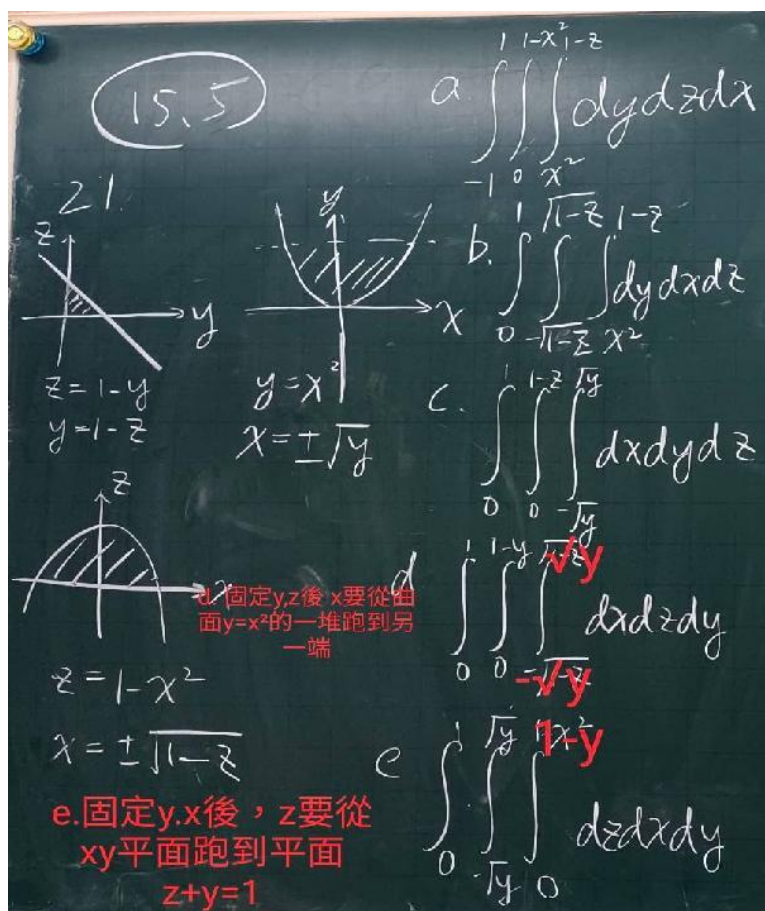 15.5
21.
z
y
z=1-y
y=1-z
y
x
y=x²
x=±√y
z
x
z=1-x²
x=±√1-z
a. ∫_{-1}^{1} ∫_{0}^{1-x²} ∫_{x²}^{1-z} dydzdx
b. ∫_{0}^{1} ∫_{-√1-z}^{√1-z} ∫_{x²}^{1-z} dydxdz
c. ∫_{0}^{1} ∫_{0}^{1-z} ∫_{-√y}^{√y} dxdydz
d ∫_{0}^{1} ∫_{0}^{1-y} ∫_{-√y}^{√y} dxdzdy
d. 固定y,z後 x要從曲
面y=x²的一堆跑到另
一端
e ∫_{0}^{1} ∫_{-√y}^{√y} ∫_{0}^{1-y} dzdxdy
e.固定y.x後，z要從
xy平面跑到平面
z+y=1